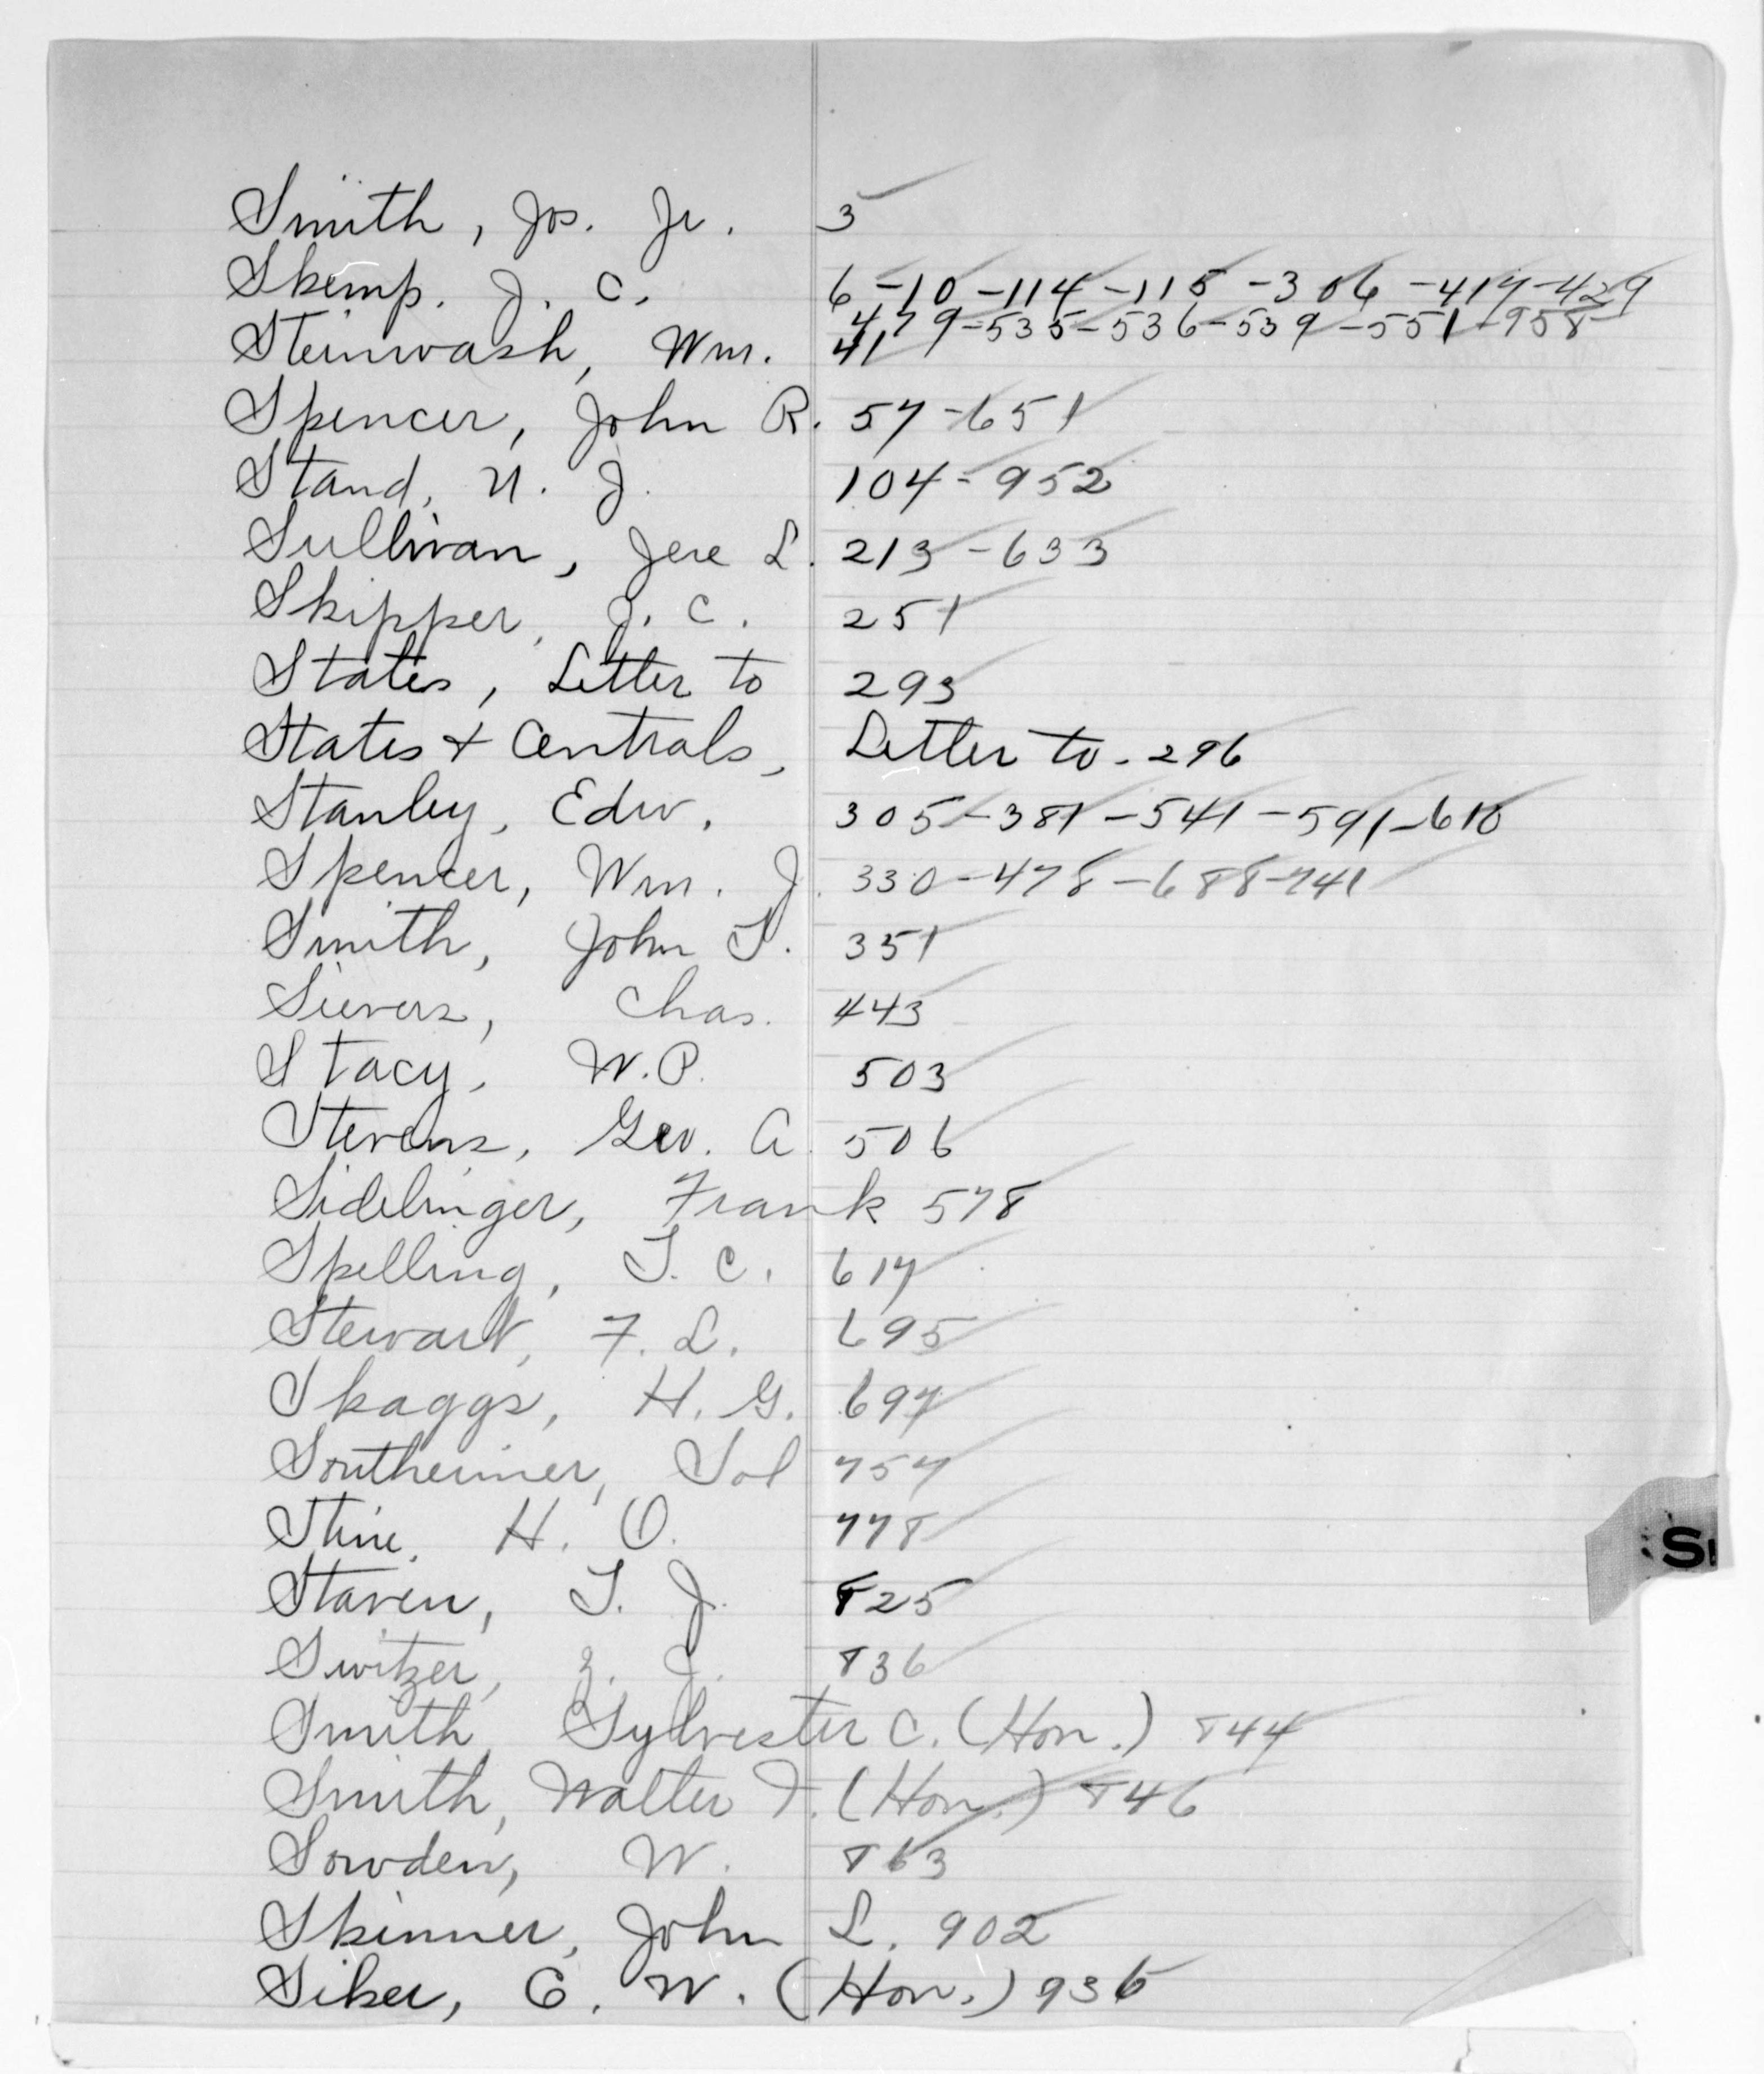 Smith, Jos. Jr. 3
Skemp. J. C. 6-10-114-115-306-417-429
479-535-536-539-551-958
Steinwash, Wm. 41
Spencer, John R. 57-651
Stand, N. J. 104-952
Sullivan, Jere L. 213-633
Skipper, J. C. 251
States, Letter to 293
States + Centrals, Letter to - 296
Stanley, Edw. 305-381-541-591-610
Spencer, Wm. J. 330-478-688-741
Smith, John T. 351
Sievers, Chas. 443
Stacy, W. P. 503
Stevens, Geo. A. 506
Sidelinger, Frank 578
Spelling, T. C. 617
Stewart, F. L. 695
Skaggs, H. G. 697
Sontheimer, Sol 757
Stine, H. O. 778
Staven, T. J. 825
Switzer, J. 836
Smith, Sylvester C. (Hon.) 844
Smith, Walter I. (Hon.) 846
Sowden, W. 863
Skinner, John L. 902
Siker, C. W. (Hon.) 936